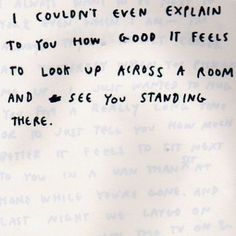 I COULDN'T EVEN EXPLAIN
TO YOU HOW GOOD IT FEELS
TO LOOK UP ACROSS A ROOM
AND SEE YOU STANDING
THERE.
OR TO JUST TELL YOU HOW MUCH
BETTER IT FEELS TO SIT NEXT
TO YOU IN A VAN THAN SIT AT
HOME WHILE YOU'RE GONE. AND
LAST NIGHT WE LAYED ON